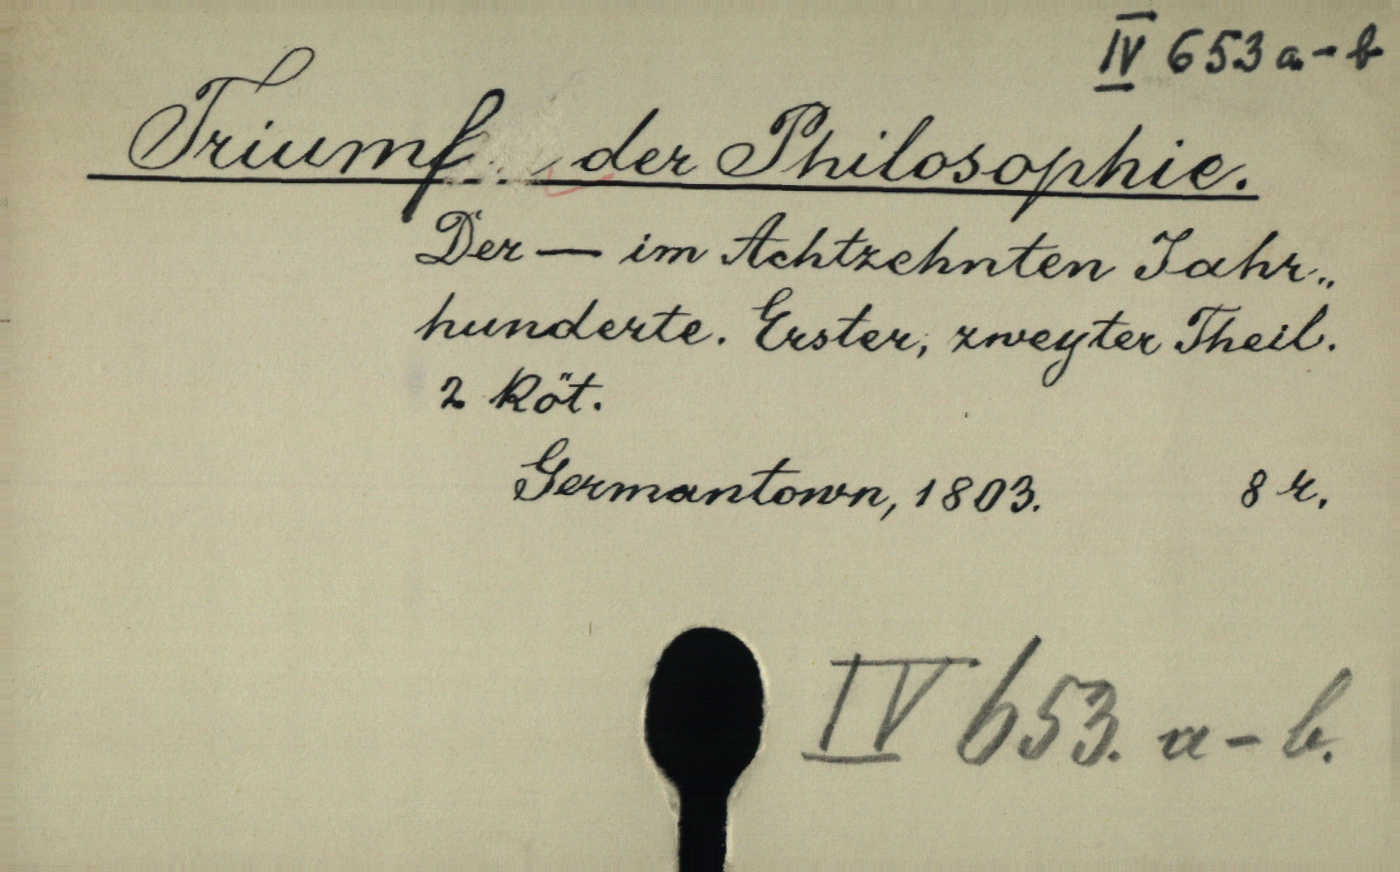 IV 653 a-b
Triumf der Philosophie.
Der — im Achtzehnten Jahr„
hunderte. Erster, zweyter Theil.
2 Köt.
Germantown, 1803. 8 r.
IV 653. a-b.